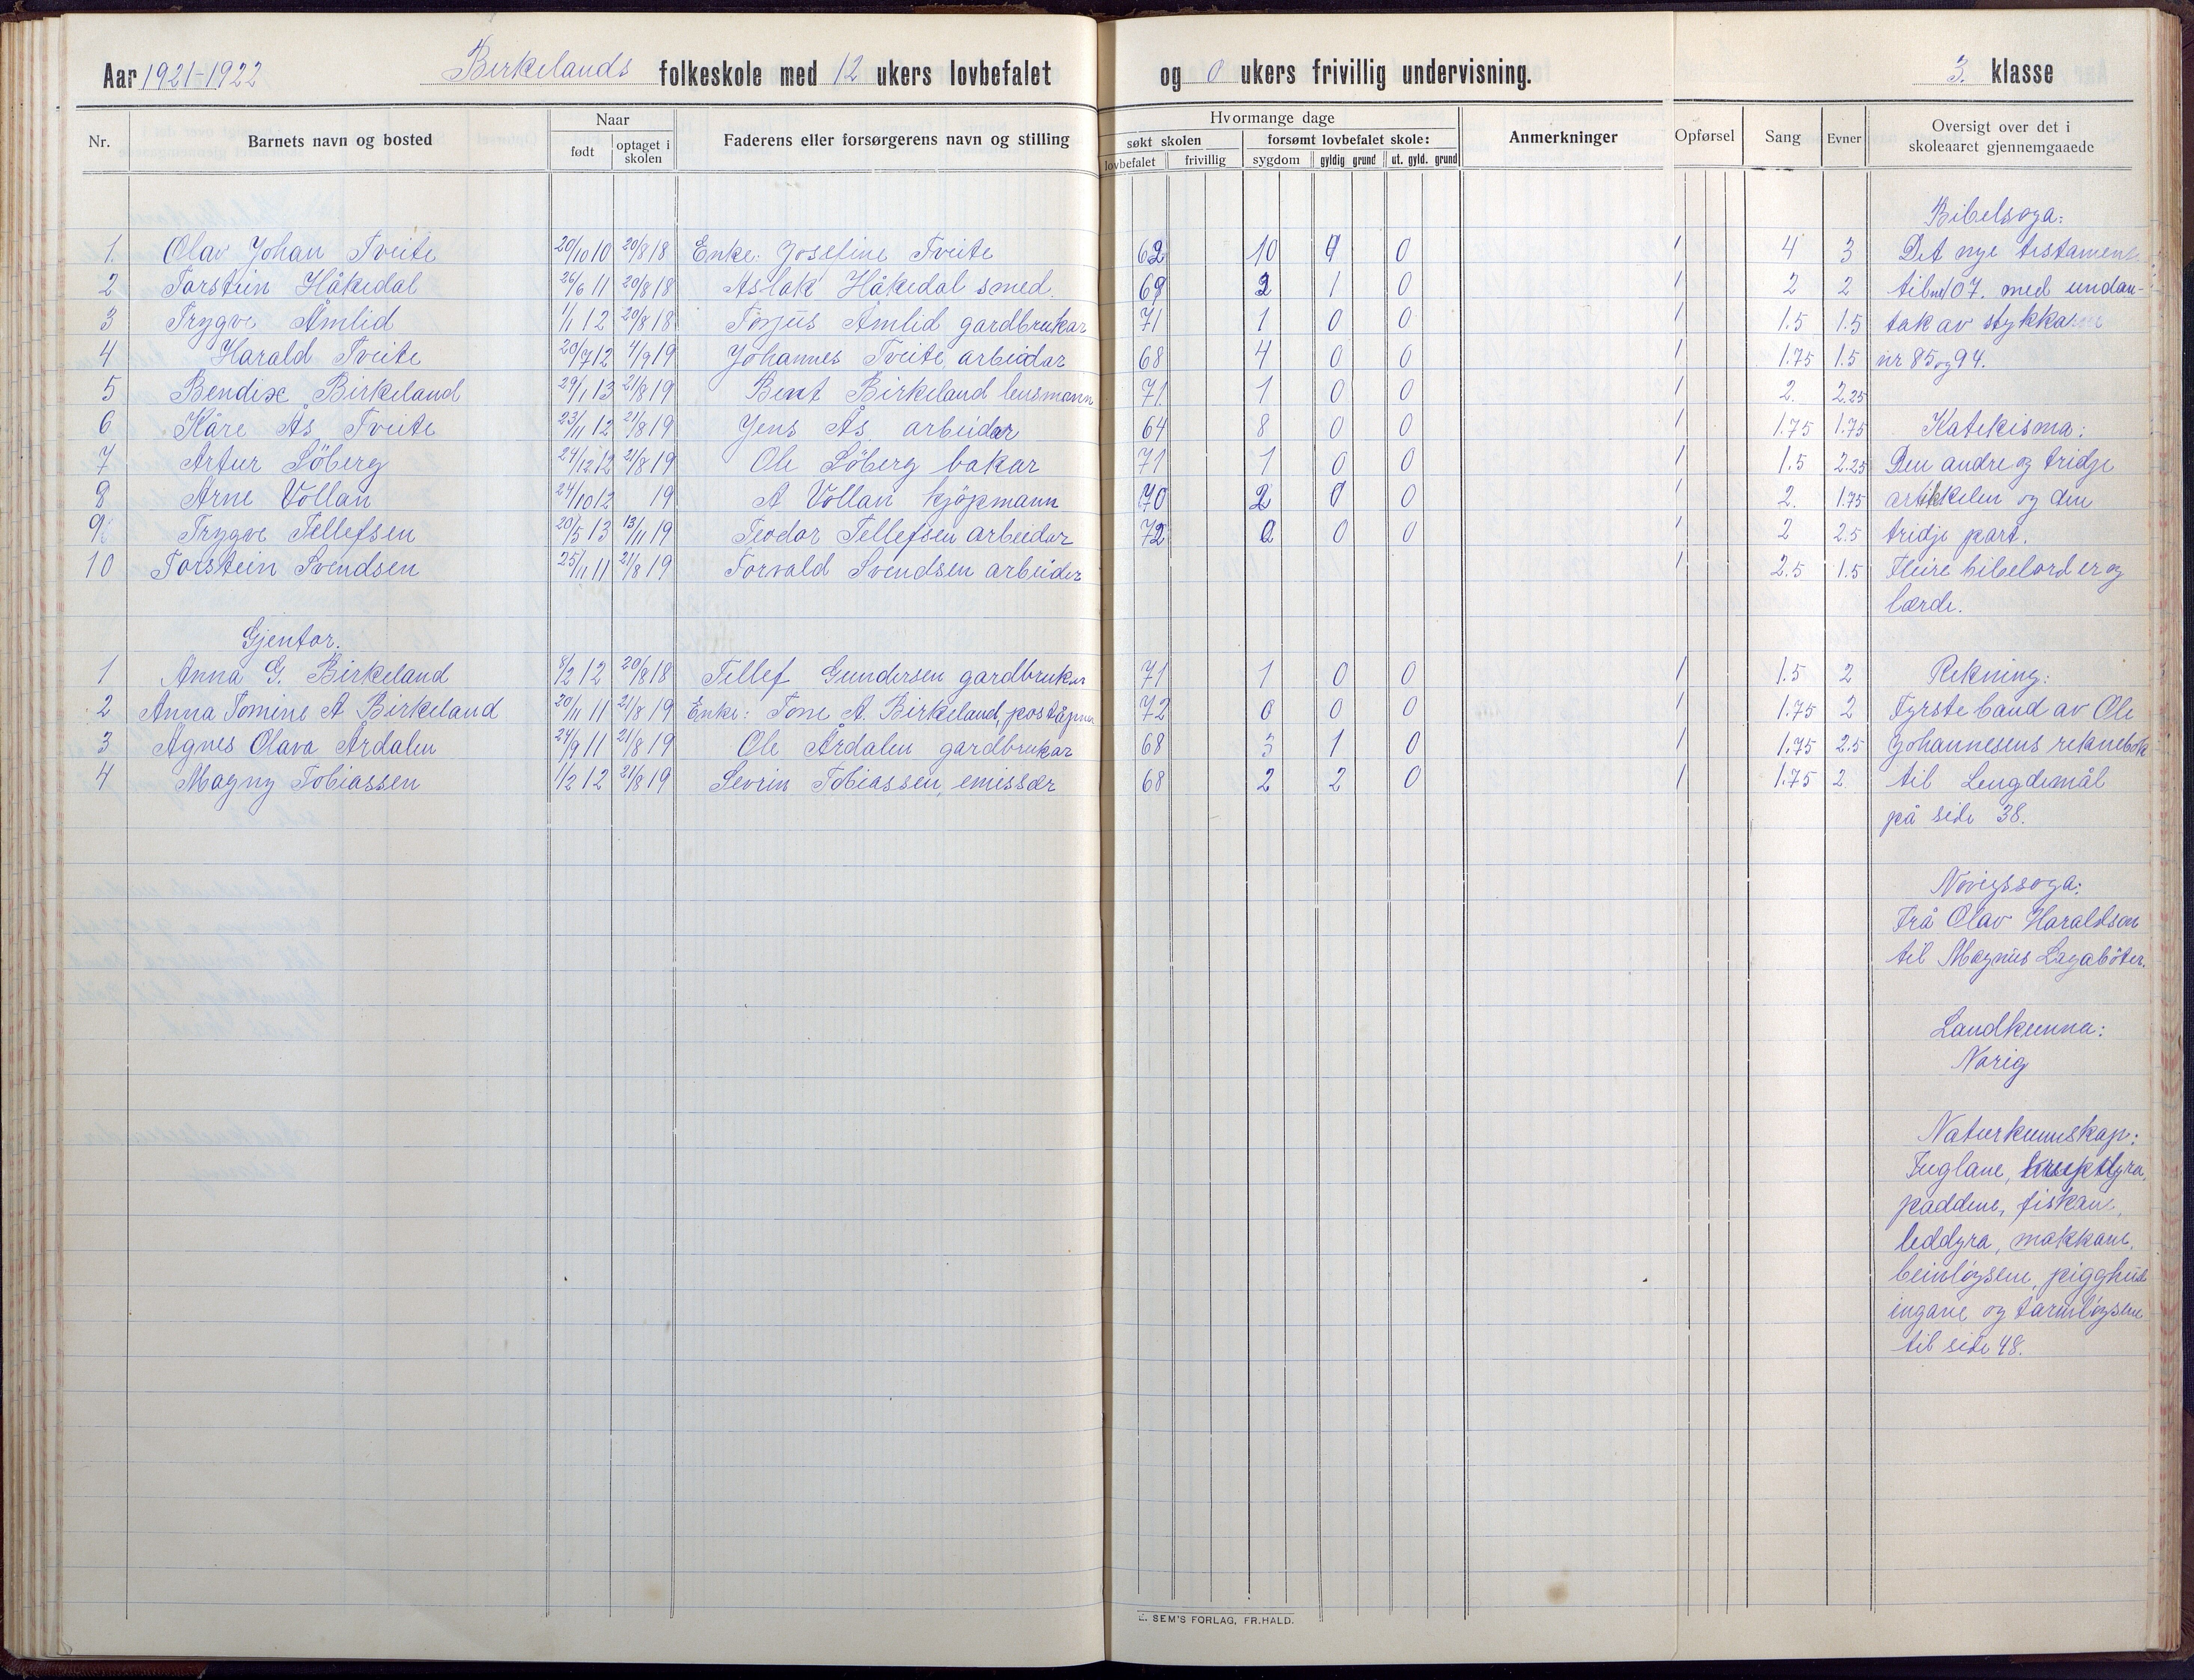 Aar 1921-1922 Birkelands folkeskole med 12 ukers lovbefalet og 0 ukers frivillig undervisning. 3. klasse
Nr. Barnets navn og bosted Naar født optaget i skolen Faderens eller forsørgerens navn og stilling Hvormange dage søkt skolen lovbefalet frivillig forsømt lovbefalet skole: sygdom gyldig grund ut. gyld. grund Anmerkninger Opførsel Sang Evner Oversigt over det i skoleaaret gjennemgaaede
Bibelsoga:
1. Olav Johan Tveite 20/10 10 20/8 18 Enke: Joseline Tveite 62 10 0 1 4 3 Det nye testamente
2 Torstein Håkedal 26/6 11 20/8 18 Aslak Håkedal smed. 69 2 1 0 1 2 2 til nr 107. med undan-
3 Trygve Åmlid 1/1 12 20/8 18 Torjus Åmlid gardbrukar 71 1 0 0 1 1.5 1.5 tak av stykka
4 Harald Tveite 20/7 12 4/9 19 Johannes Tveite, arbeidar 68 4 0 0 1 1.75 1.5 nr 85 og 94.
5 Bendix Birkeland 29/1 13 21/8 19 Bent Birkeland lensmann 71 1 0 0 1 2. 2.25
6 Kåre Ås Tveite 23/11 12 21/8 19 Jens Ås arbeidar 64 8 0 0 1 1.75 1.75 Katekisma:
7 Artur Söberg 24/12 12 21/8 19 Ole Söberg bakar 71 1 0 0 1 1.5 2.25 Den andre og tridje
8 Arne Vollan 24/10 12 19 A Vollan kjöpmann 70 2 0 0 1 2. 1.75 artikkelen og den
9 Trygve Tellefsen 20/5 13 13/11 19 Teodor Tellefsen arbeidar 72 0 0 0 1 2 2.5 tridje part.
10 Torstein Svendsen 25/11 11 21/8 19 Torvald Svendsen arbeider 1 2.5 1.5 Fleire bibelord er og
lærde.
Gjentor.
1 Anna G. Birkeland 8/2 12 20/8 18 Tellef Gundersen gardbrukar 71 1 0 0 1 1.5 2 Rekning:
2 Anna Tomine A Birkeland 20/11 11 21/8 19 Enke: Tone A. Birkeland, poståpnar 72 0 0 0 1 1.75 2 Fyrste band av Ole
3 Agnes Olava Årdalen 24/9 11 21/8 19 Ole Årdalen gardbrukar 68 3 1 0 1 1.75 2.5 Johannesens reknebok
4 Magny Tobiassen 1/2 12 21/8 19 Sevrin Tobiassen, emissær 68 2 2 0 1 1.75 2. til Lengdemål
på side 38.
Norigssoga:
Frå Olav Haraldson
til Magnus Lagaböter.
Landkunna:
Norig
Naturkunnskap:
Fuglane, krupdyra,
paddene, fiskane,
leddyra, makkane,
beinløysene, pigghud
ingane og tarmløysene
til side 48.
E. SEM'S FORLAG, FR.HALD.